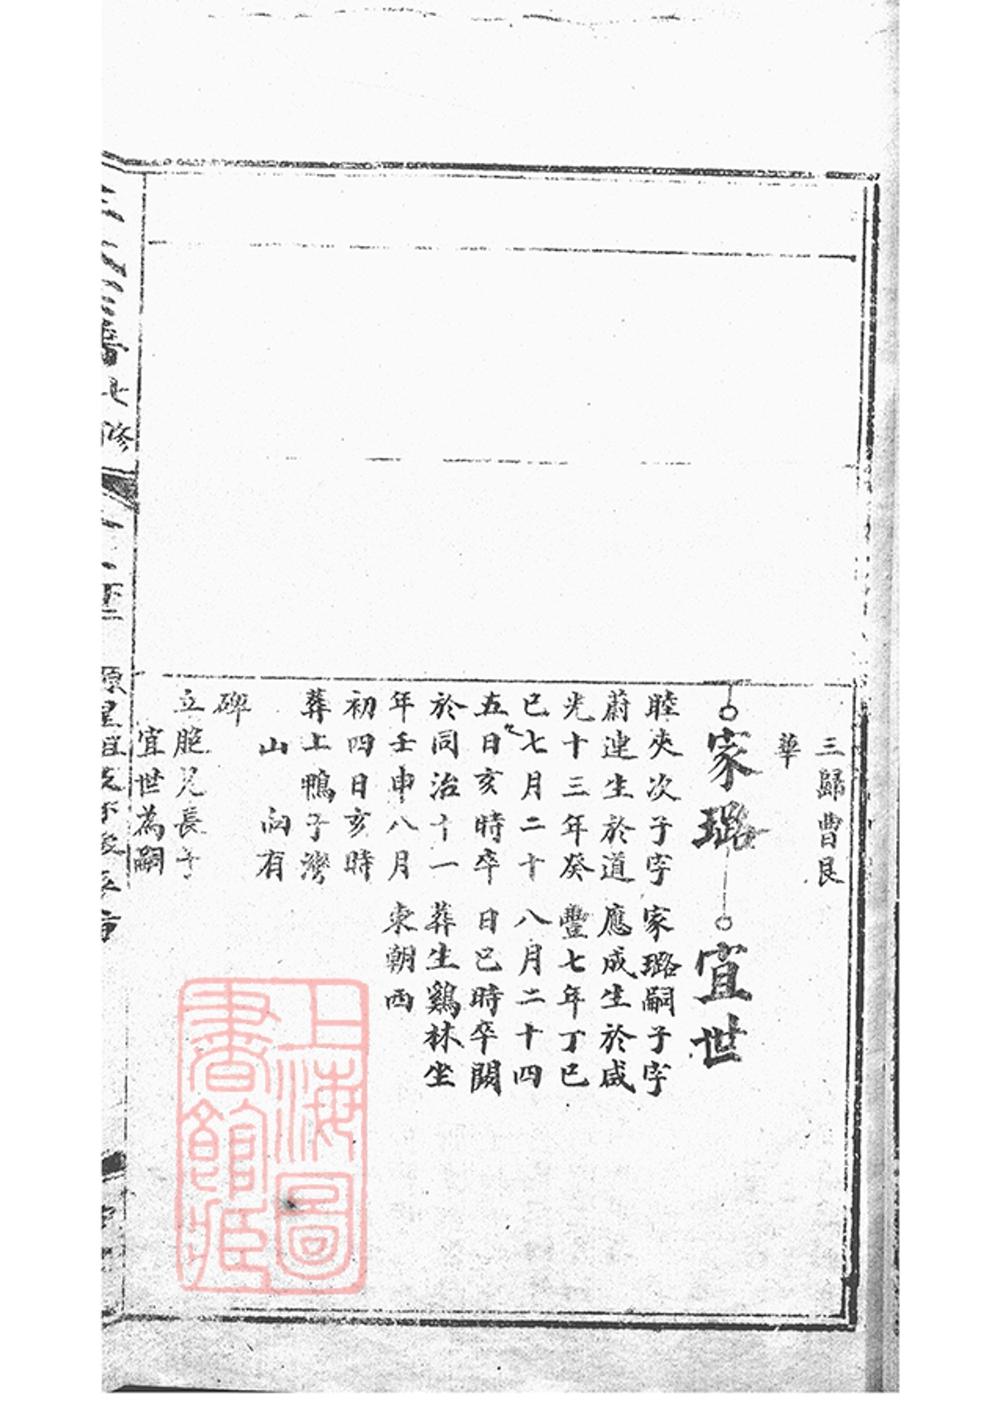 三歸曹艮
華
家璐
宜世
睦夾次子字
蔚連生於道
光十三年癸
巳七月二十
五日亥時卒
於同治十一
年壬申八月
初四日亥時
葬上鴨子灣
山向有
碑
立胞兄長子
宜世為嗣
家璐嗣子字
應成生於咸
豐七年丁巳
八月二十四
日巳時卒闕
葬生鷄林坐
東朝西
譜七修
上海圖
書館藏